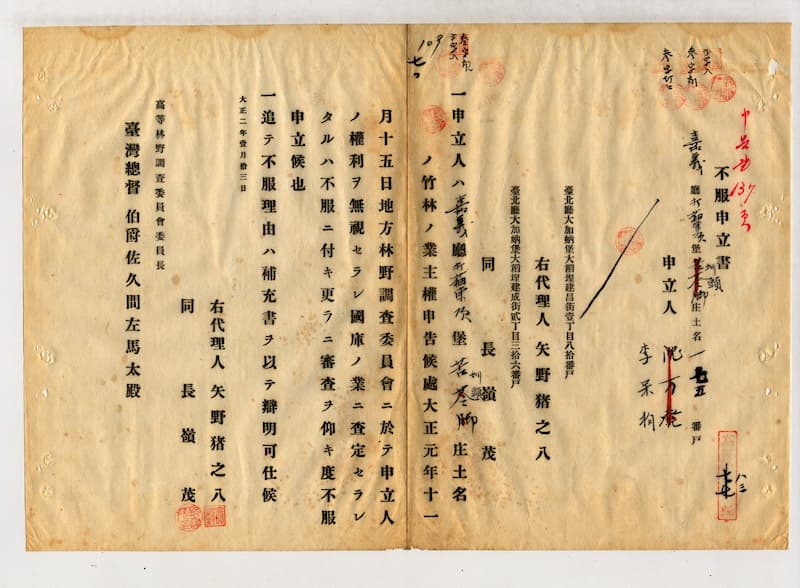 不服申立書
嘉義廳打猫東頂堡圳頭庄土名 一七五 番戸
申立人
李 杲 狗
臺北廳大加蚋堡大稻埕建昌街壹丁目八拾番戸
右代理人 矢野猪之八
臺北廳大加蚋堡大稻埕建成街貳丁目三拾六番戸
同 長嶺 茂
一申立人ハ嘉義廳打猫東頂堡圳頭庄土名
ノ竹林ノ業主權申告候處大正元年十一
月十五日地方林野調査委員會ニ於テ申立人
ノ權利ヲ無視セラレ國庫ノ業ニ査定セラレ
タルハ不服ニ付キ更ラニ審査ヲ仰キ度不服
申立候也
一追テ不服理由ハ補充書ヲ以テ辯明可仕候
大正二年壹月拾三日
右代理人 矢野猪之八
同 長嶺 茂
高等林野調査委員會委員長
臺灣總督 伯爵佐久間左馬太殿